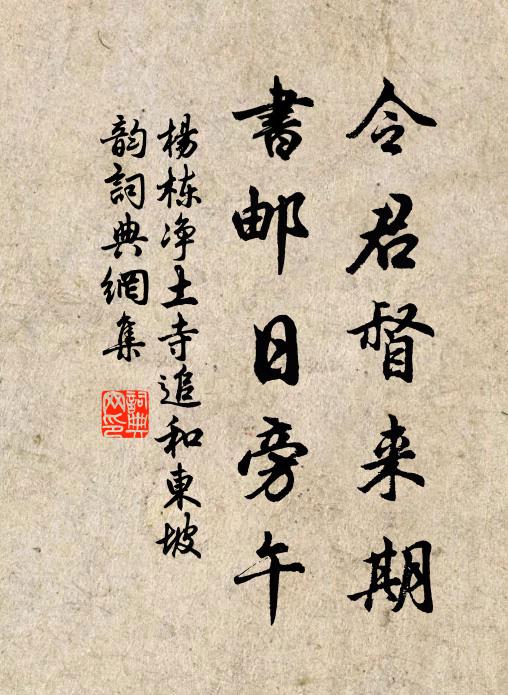 令君督来期
書邮日旁午
楊栋净土寺追和東坡
韵詞典網集
詞典网印